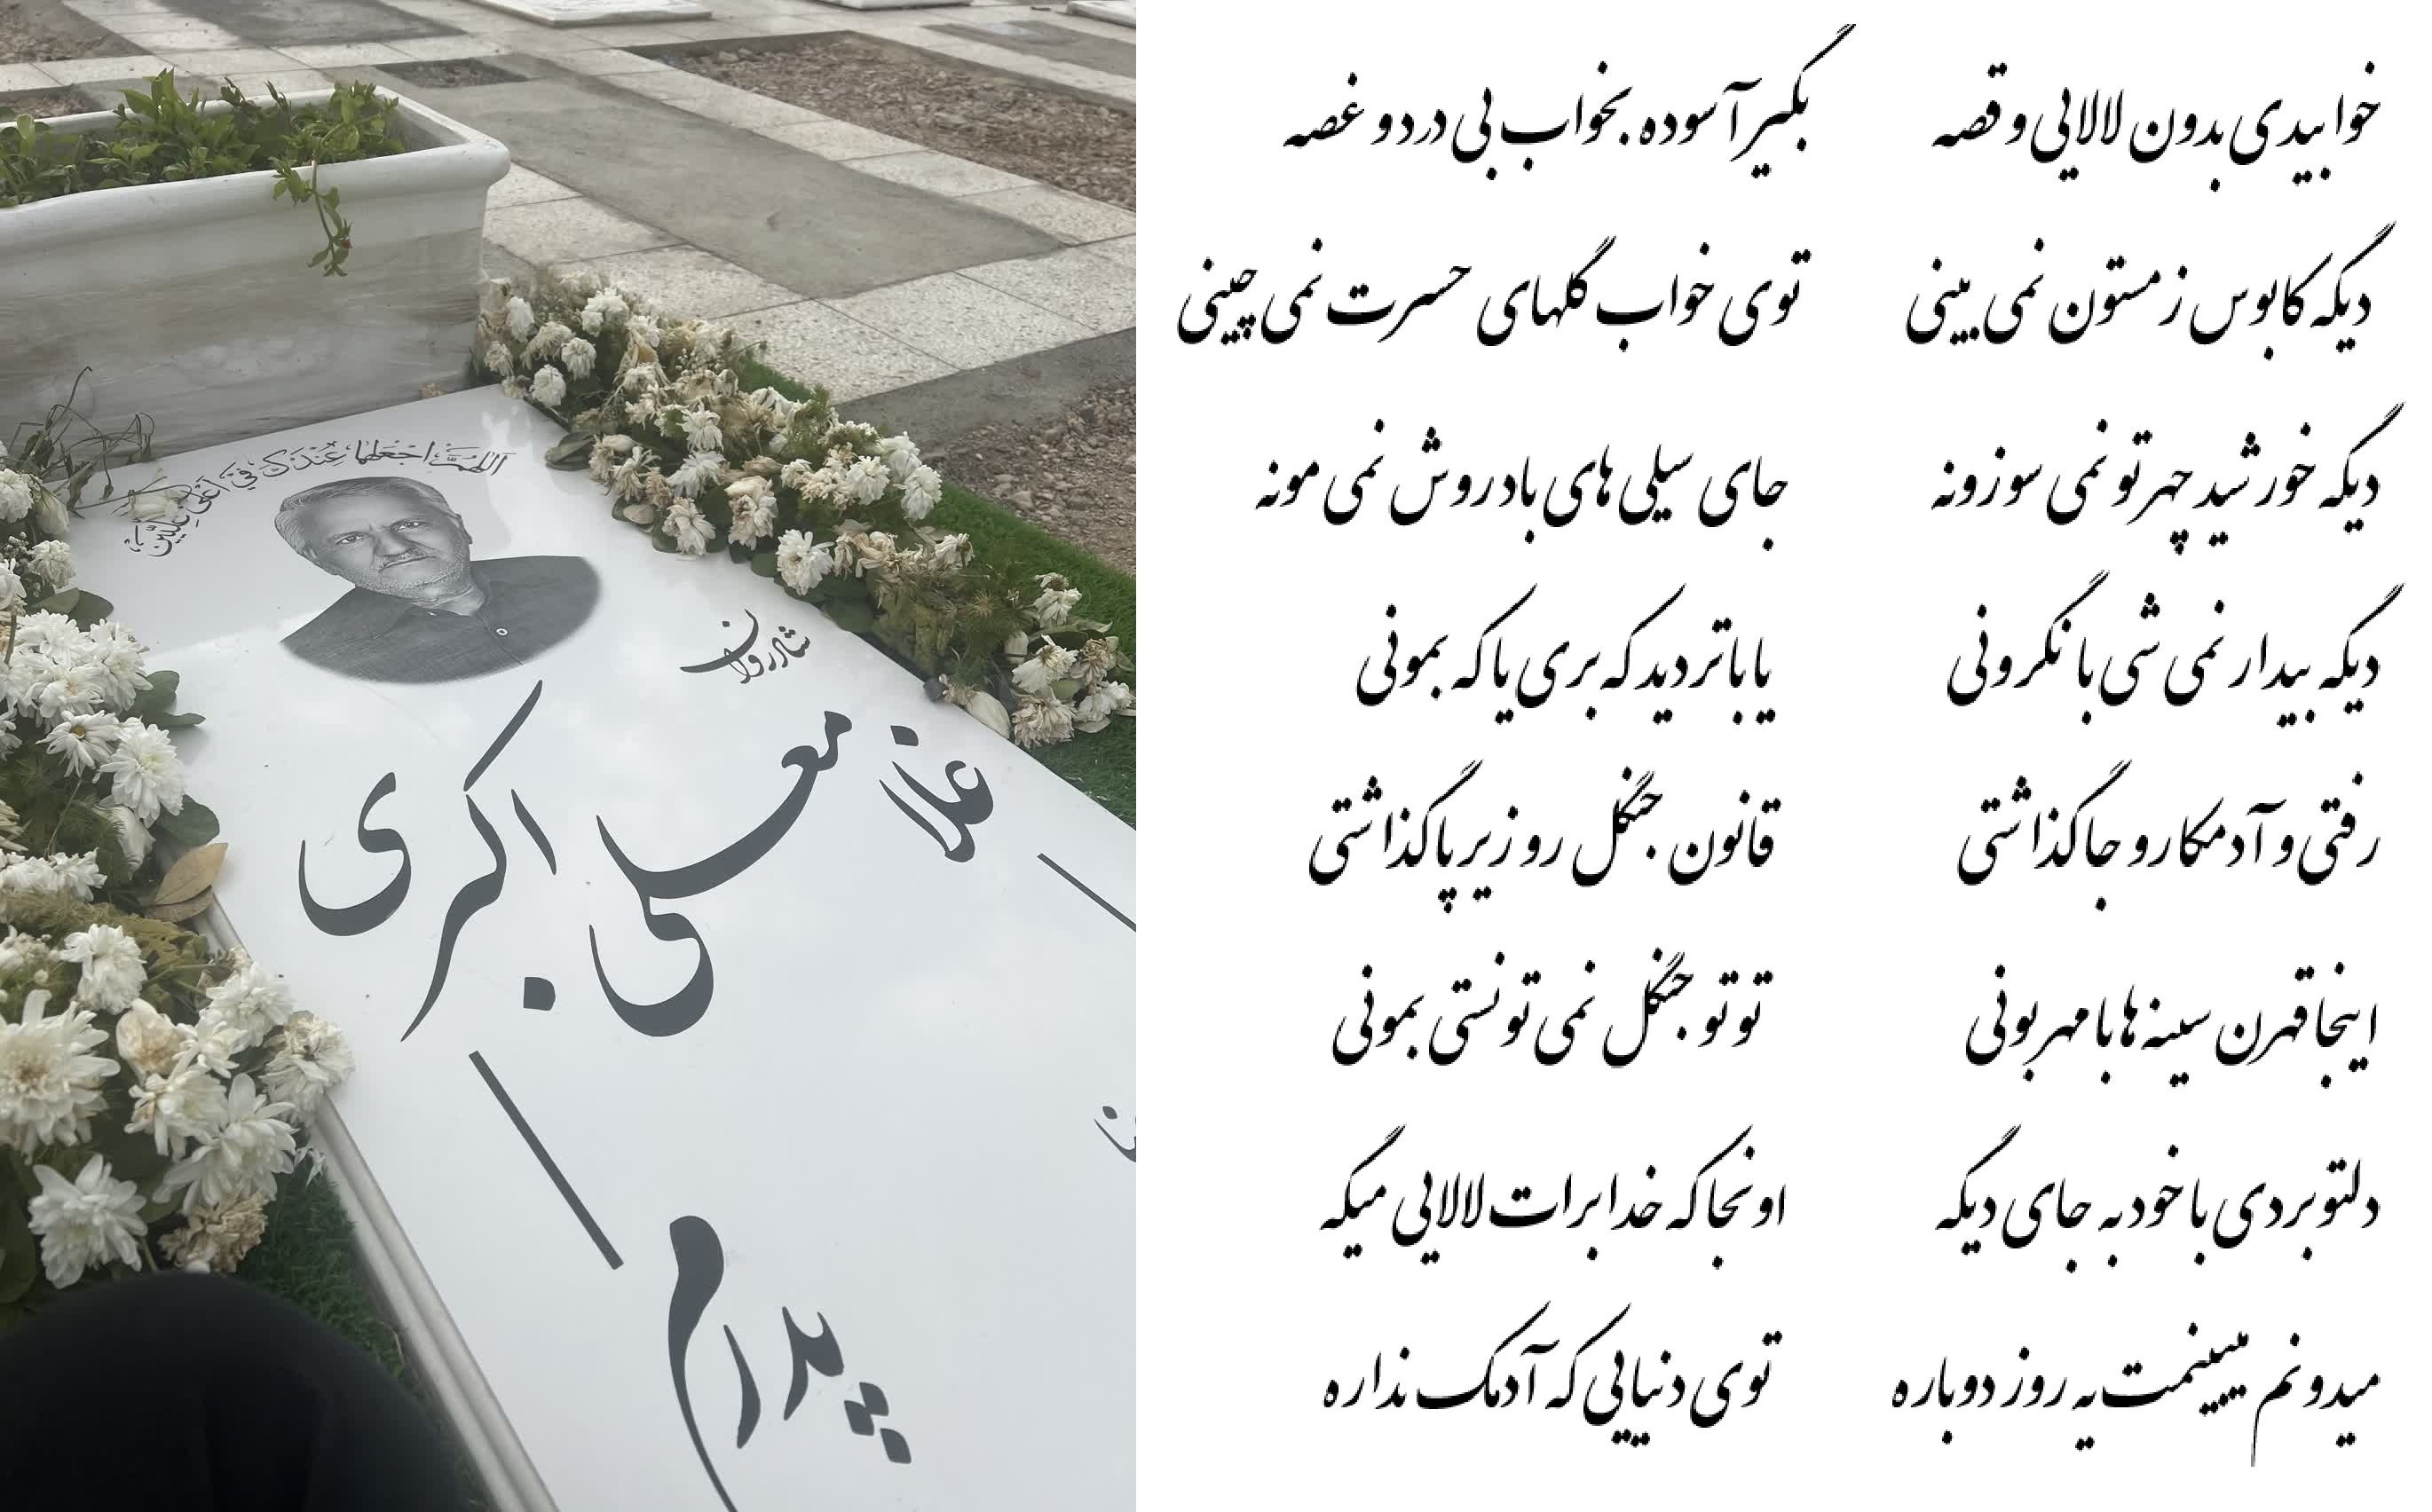 اللهم اجعلها عندك في أعلى عليين
شادروان
غلامعلی اکبری
پدرم
خوابیدی بدون لالایی و قصه بگیر آسوده بخواب بی درد و غصه
دیگه کابوس زمستون نمی بینی توی خواب گلهای حسرت نمی چینی
دیگه خورشید چهرتو نمی سوزونه جای سیلی های باد روش نمی مونه
دیگه بیدار نمی شی با نگرونی یا با تردید که بری یا که بمونی
رفتی و آدمکا رو جا گذاشتی قانون جنگل رو زیر پا گذاشتی
اینجا قهرن سینه ها با مهربونی تو تو جنگل نمی تونستی بمونی
دلتو بردی با خود به جای دیگه اونجا که خدا برات لالایی میگه
میدونم میبینمت یه روز دوباره توی دنیایی که آدمک نداره